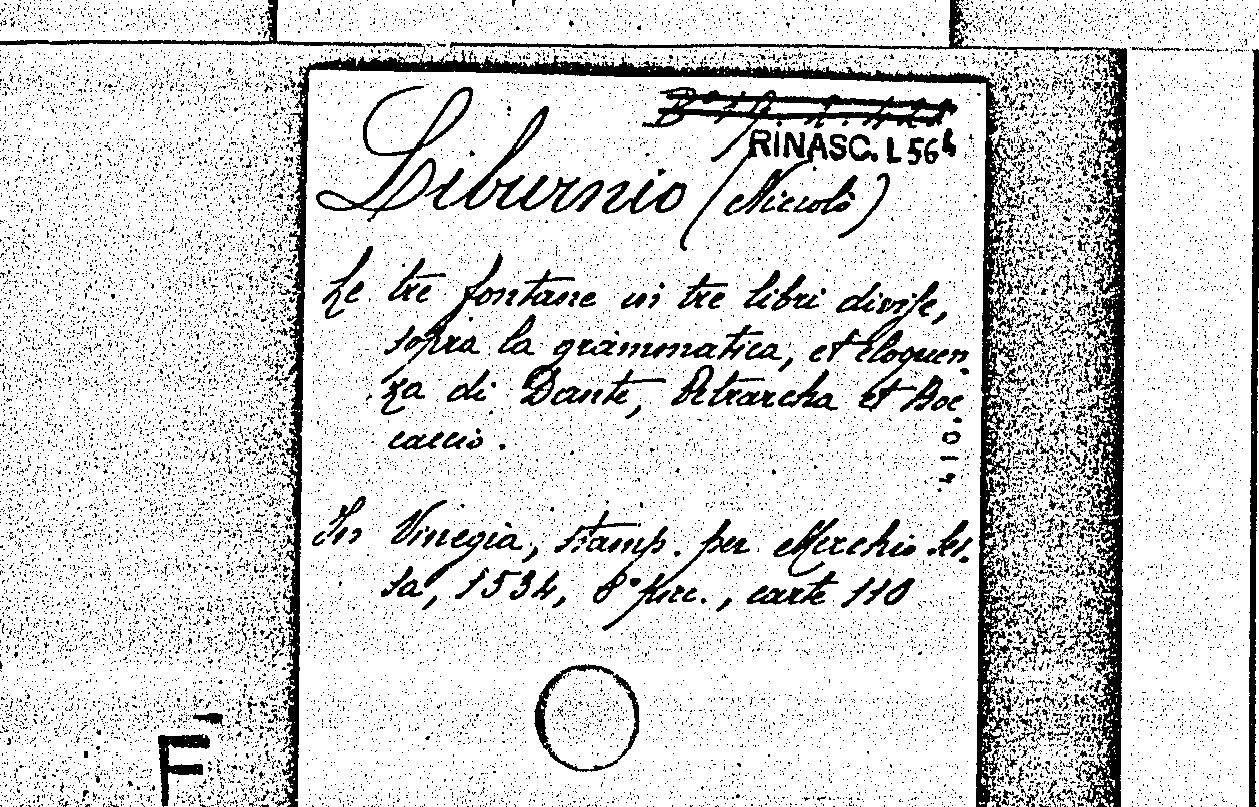 RINASC. L 56
Liburnio (Niccolò)
Le tre fontane in tre libri divise,
sopra la grammatica, et eloquen-
za di Dante, Petrarcha et Boc-
caccio.
410.
In Vinegia, stamp. per Merchio Ses-
sa, 1534, 8° picc., carte 110
F